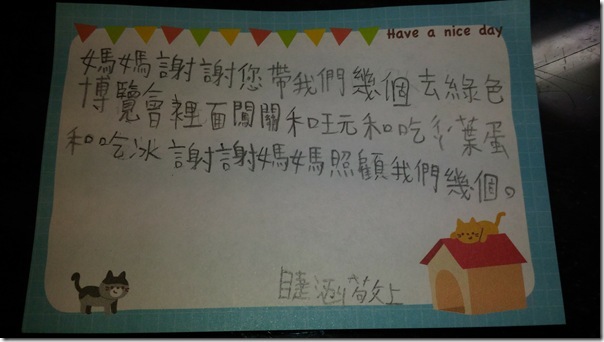 Have a nice day
媽媽謝謝您帶我們幾個去綠色
博覽會裡面闖關和玩和吃ㄔㄚˊ葉蛋
和吃冰謝謝媽媽照顧我們幾個。
睫涵敬上